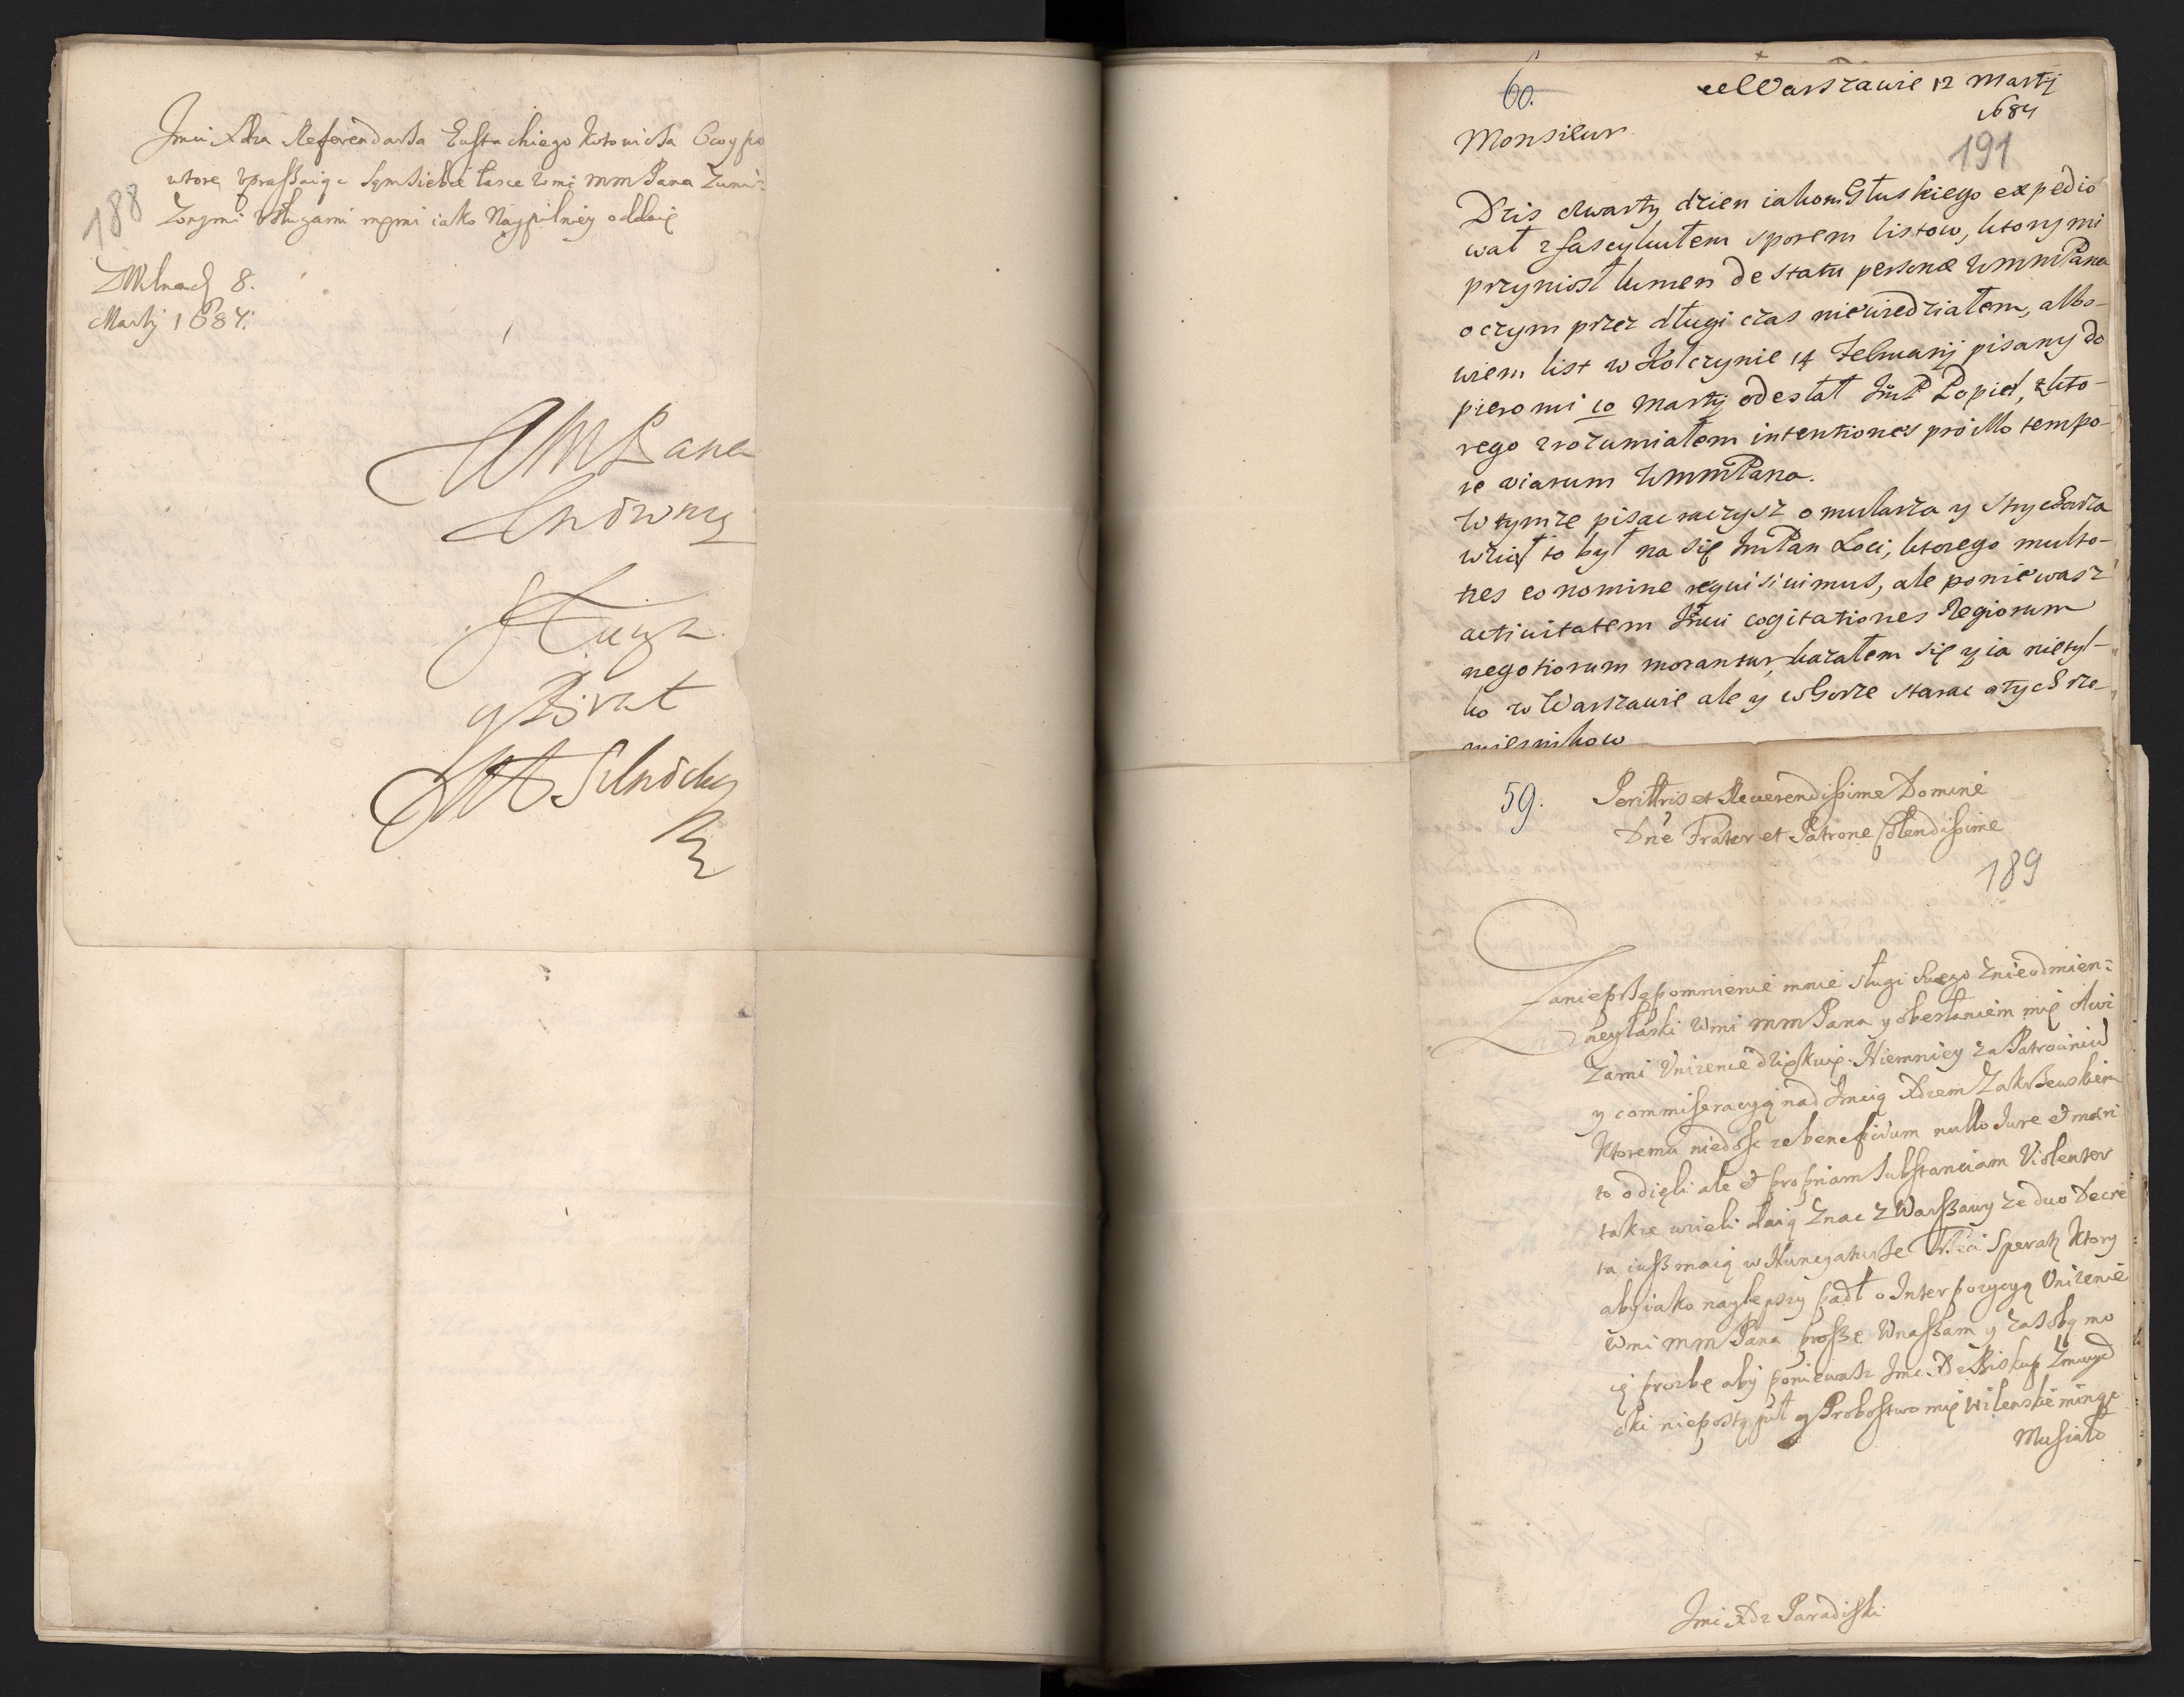 Jmci Xdza Referendarza Eustachiego Kotowicza
wtore vpraszaiąc Sam siebie łasce Wmi mm Pana Zuni:
żonymi vsługami mymi iako Naypilniey oddaię
188
ZWilna d 8.
Martij 1684.
WMPana
Sługa
y Brat
60.
w Warszawie 12 Martij
1684
191
Monsieur
Dzis czwarty dzien iakom Głuskiego expedio
wał z fascykułem sporem listow, ktory mi
przyniosł lumen de statu personæ WmmPana
o czym przez długi czas niewiedziałem, albo-
wiem list w Kolczynie 14 Februarij pisany do
piero mi 10 Martij odesłał JmP Popiel, z kto-
rego zrozumiałem intentiones pro illo tempo-
re viarum WmmPana.
W tymze pisac raczysz o mularza y Strycharza
wziął to był na się JmPan Loci, ktorego multo-
ties eo nomine requisiuimus, ale poniewasz
actiuitatem Jmci cogitationes Regiorum
negotiorum morantur, kazałem się y ia nietyl-
ko w Warszawie ale y w Gorze starac o tych rze-
miesnikow
59.
Perilltris et Reuerendissime Domine
Dne Frater et Patrone Colendissime
189
Zaniepszepomnienie mnie sługi swego Znieodmien:
ney łaski Wmi mm Pana y obesłaniem mię Awi
zami Vnizenie dzięskuię. Niemniey za Patrocinium
y commiseracyą nad Jmcią Xdzem Zakrzewskim
Ktoremu niedosc ze beneficium nullo Jure et mori
to odięli ale et propriam Substanciam Violenter
także wzieli daią Znac z Warszawy ze duo Decre
ta iusz maią w Nuncyaturze Trzeci Speratz Ktory
aby iako naylepszy padł o Interpozycyą Vnizenie
Wmi mm Pana prosze Wnaszam y Zasobą mo
ię prozbę aby poniewasz Jmc Xdz Biskup Zmuydz
cki niepostąpił y Probostwo mię Wilenskie minąc
Musiało
Jmci Xdz Paradiski